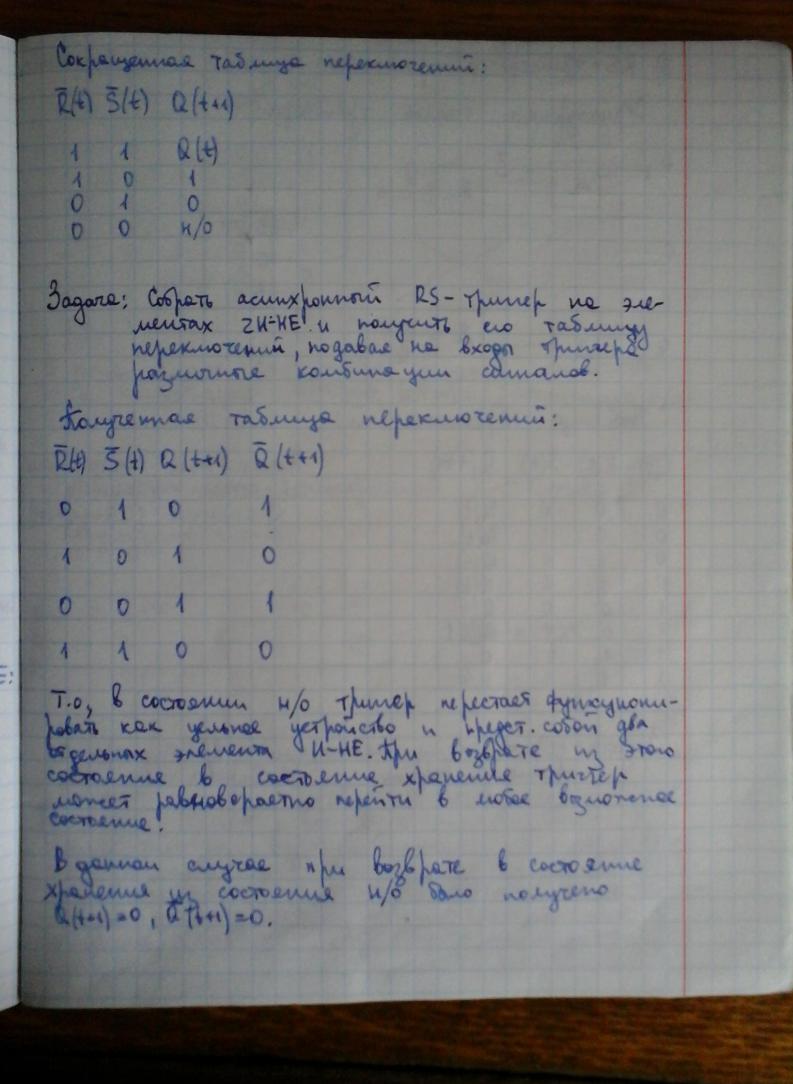 Сокращенная таблица переключений:
R̄(t) S̄(t) Q(t+1)
1 1 Q(t)
1 0 1
0 1 0
0 0 н/о
Задача: Собрать асинхронный RS-триггер на эле-
ментах 2И-НЕ и получить его таблицу
переключений, подавая на входы триггера
различные комбинации сигналов.
Полученная таблица переключений:
R̄(t) S̄(t) Q(t+1) Q̄(t+1)
0 1 0 1
1 0 1 0
0 0 1 1
1 1 0 0
Т.о, в состоянии н/о триггер перестает функциони-
ровать как цельное устройство и предст. собой два
отдельных элемента И-НЕ. При возврате из этого
состояние в состояние хранение триггер
может равновероятно перейти в любое возможное
состояние.
В данном случае при возврате в состояние
хранения из состояния н/о было получено
Q(t+1)=0, Q̄(t+1)=0.
Е: